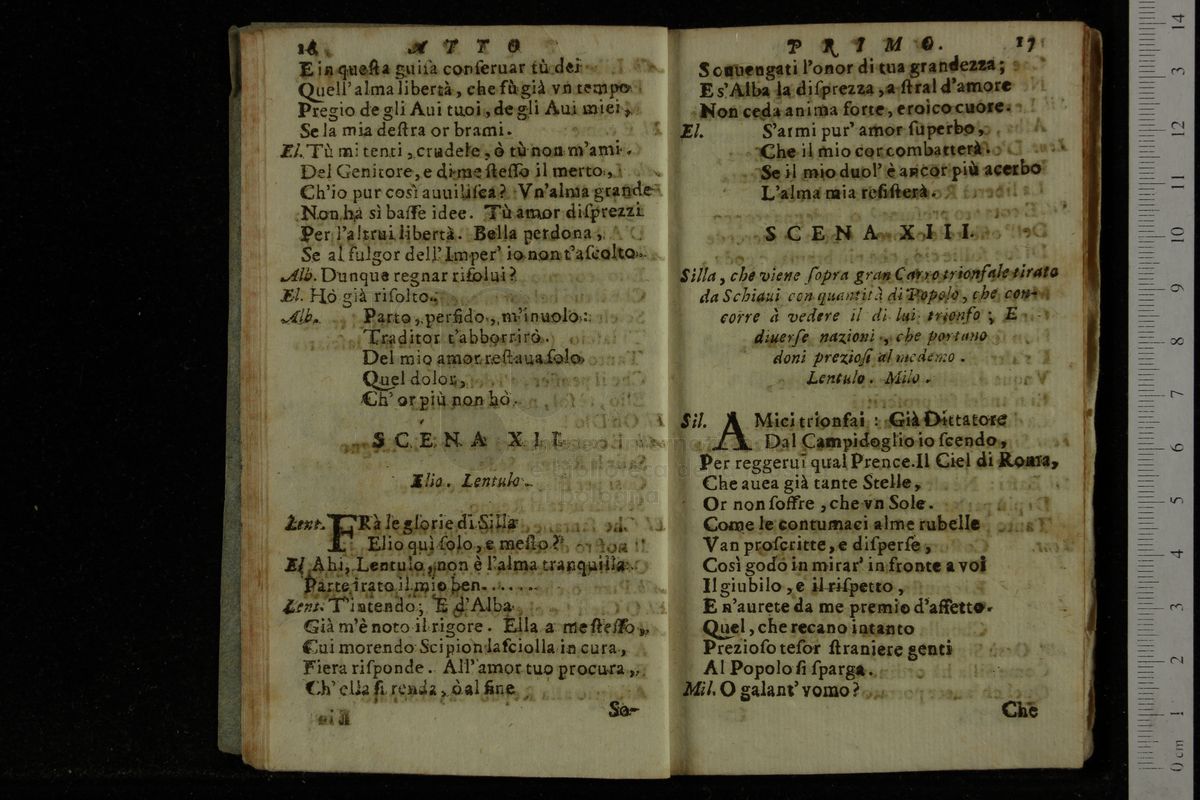 16 ATTO
E in queſta guiſa conſeruar tù dei
Quell'alma libertà, che fù già vn tempo
Pregio de gli Aui tuoi, de gli Aui miei,
Se la mia deſtra or brami.
El. Tù mi tenti, crudele, ò tù non m'ami.
Del Genitore, e di me ſteſſo il merto,
Ch'io pur così auuiliſca? Vn'alma grande
Non hà sì baſſe idee. Tù amor diſprezzi
Per l'altrui libertà. Bella perdona,
Se al fulgor dell'Imper' io non t'aſcolto.
Alb. Dunque regnar riſolui?
El. Hò già riſolto.
Alb. Parto, perfido, m'inuolo:
Traditor t'abborrirò.
Del mio amor reſtaua ſolo
Quel dolor,
Ch'or più non hò.
SCENA XII.
Elio. Lentulo.
Lent. FRà le glorie di Silla
Elio quì ſolo, e meſto?
El. Ahi, Lentulo, non è l'alma tranquilla.
Parte irato il mio ben......
Lent. T'intendo; E d'Alba
Già m'è noto il rigore. Ella a me ſteſſo,
Cui morendo Scipion laſciolla in cura,
Fiera riſponde. All'amor tuo procura,
Ch'ella ſi renda, ò al fine
So-
PRIMO. 17
Souuengati l'onor di tua grandezza;
E s'Alba la diſprezza, a ſtral d'amore
Non ceda anima forte, eroico cuore.
El. S'armi pur' amor ſuperbo,
Che il mio cor combatterà.
Se il mio duol' è ancor più acerbo
L'alma mia reſiſterà.
SCENA XIII.
Silla, che viene ſopra gran Carro trionfale tirato
da Schiaui con quantità di Popolo, che con-
corre à vedere il di lui trionfo; E
diuerſe nazioni, che portano
doni prezioſi al medemo.
Lentulo. Milo.
Sil. AMici trionfai: Già Dittatore
Dal Campidoglio io ſcendo,
Per reggerui qual Prence. Il Ciel di Roma,
Che auea già tante Stelle,
Or non ſoffre, che vn Sole.
Come le contumaci alme rubelle
Van proſcritte, e diſperſe,
Così godo in mirar' in fronte a voi
Il giubilo, e il riſpetto,
E n'aurete da me premio d'affetto.
Quel, che recano intanto
Prezioſo teſor ſtraniere genti
Al Popolo ſi ſparga.
Mil. O galant'vomo?
Che